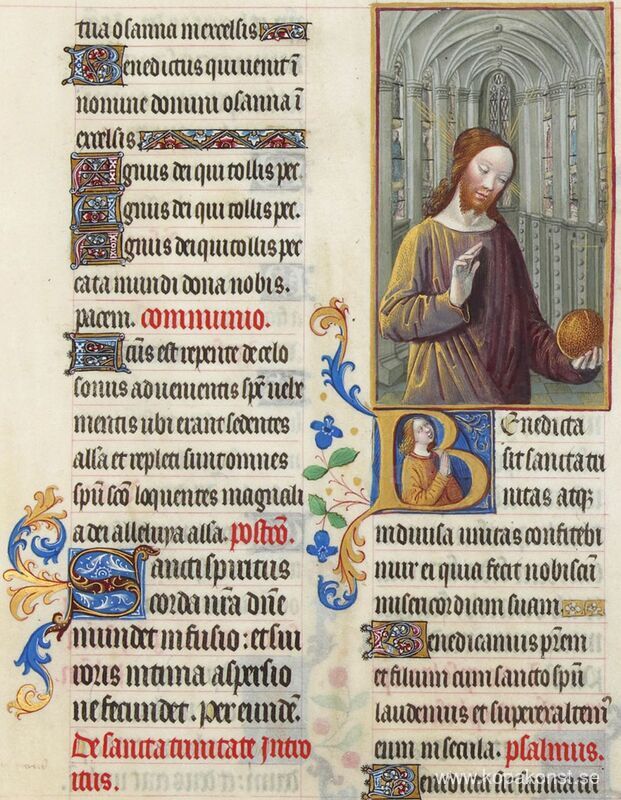 tua osanna in excelsis
Benedictus qui uenit ī
nomine domini osanna ī
excelsis.
Agnus dei qui tollis pec
Agnus dei qui tollis pec.
Agnus dei qui tollis pec
cata mundi dona nobis.
pacem. communio.
Factus est repente de celo
sonus aduenientis spūs uehe
mentis ubi erant sedentes
alla et repleti sunt omnes
spū scō loquentes magnali
a dei alleluya alla. postcō.
Sancti spiritus
corda nr̄a dn̄e
mundet infusio: et sui
roris intima aspersio
ne fecundet. Per eundē.
De sancta trinitate Intro
itus.
Benedicta
sit sancta tri
nitas atq̄
indiuisa unitas confitebi
mur ei quia fecit nobiscū
misericordiam suam
Benedicamus pr̄em
et filium cum sancto spū
laudemus et superexaltem⁹
eum in secula. psalmus.
Benedicta sit
www.kopakonst.se